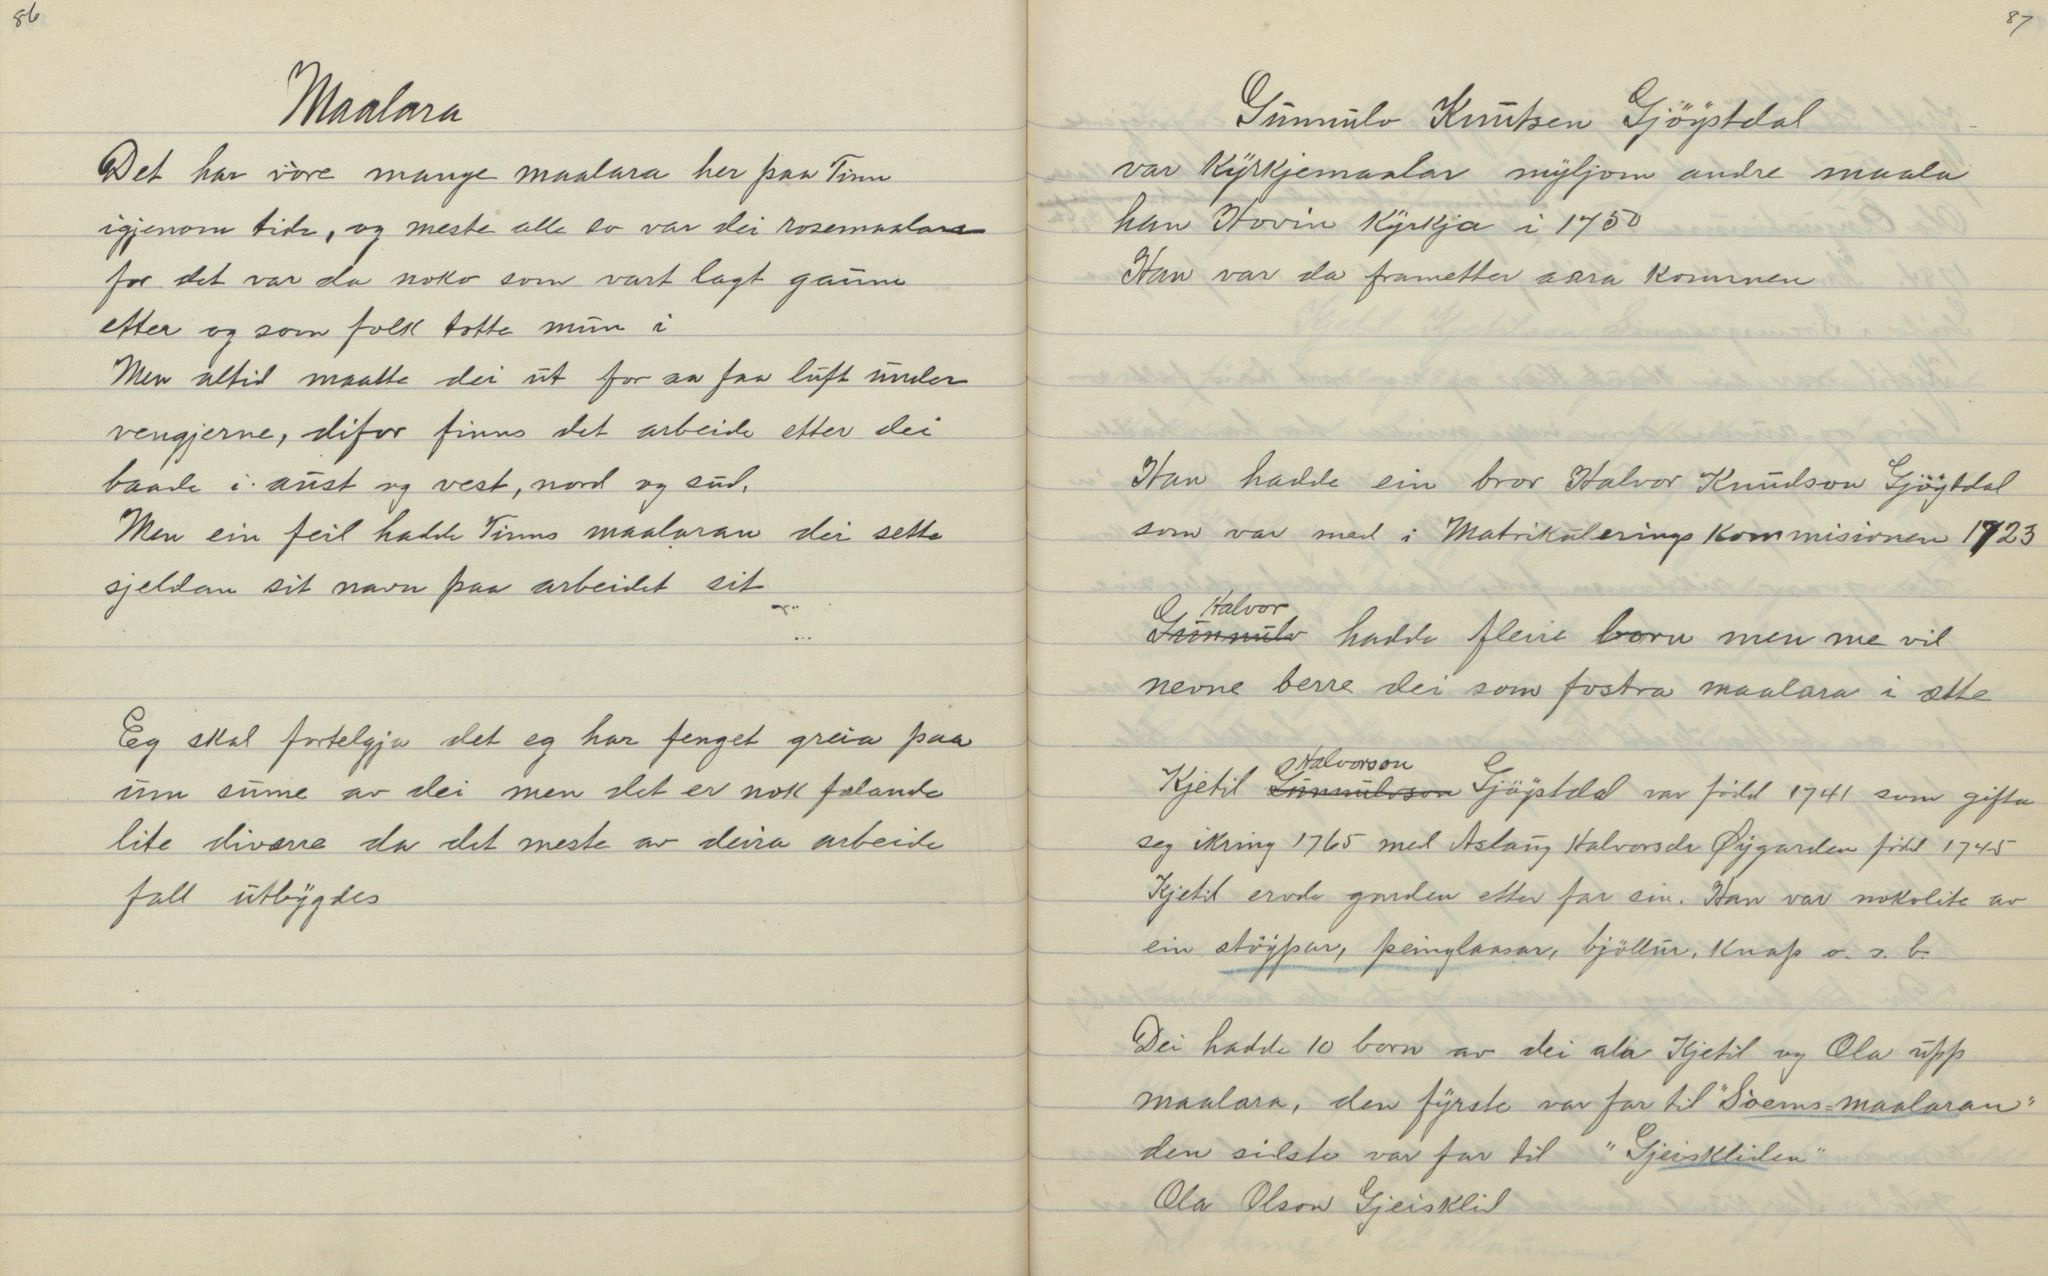 86
Maalara
Det har vore mange maalara her paa Tinn
igjenom tide, og meste alle so var dei rosemaalara
for det var da noko som vart lagt gaum
etter og som folk totte mun i
Men altid maatte dei ut for aa faa luft under
vengjerne, difor finns det arbeide etter dei
baade i aust og vest, nord og sud.
Men ein feil hadde Tinns maalaran dei sette
sjeldan sit navn paa arbeidet sit
Eg skal fortelgja det eg har fenget greia paa
um sume av dei men det er nok falande
lite diværre da det meste av deira arbeide
fall utbygdes
87
Gunnulv Knutsen Gjøystdal
var Kyrkjemaalar myljom andre maala
han Hovin Kyrkja i 1750
Han var da frametter aara kommen
Han hadde ein bror Halvor Knudson Gjøystdal
som var med i Matrikulerings Kommisionen 1723
Halvor
Gunnulv hadde fleire born men me vil
nevne berre dei som fostra maalara i ætte
Halvorson
Kjetil Gunnulvson Gjøystdal var født 1741 som gifta
seg ikring 1765 med Aslaug Halvorsdr Øygarden født 1745
Kjetil ervde garden etter far sin. Han var nokolite av
ein støypar, peinglaasar, bjöllur, Knap o. s. b.
Dei hadde 10 born av dei ala Kjetil og Ola upp
maalara, den fyrste var far til "Søems=maalaran"
den sidste var far til "Gjeiskliden"
Ola Olson Gjeisklid